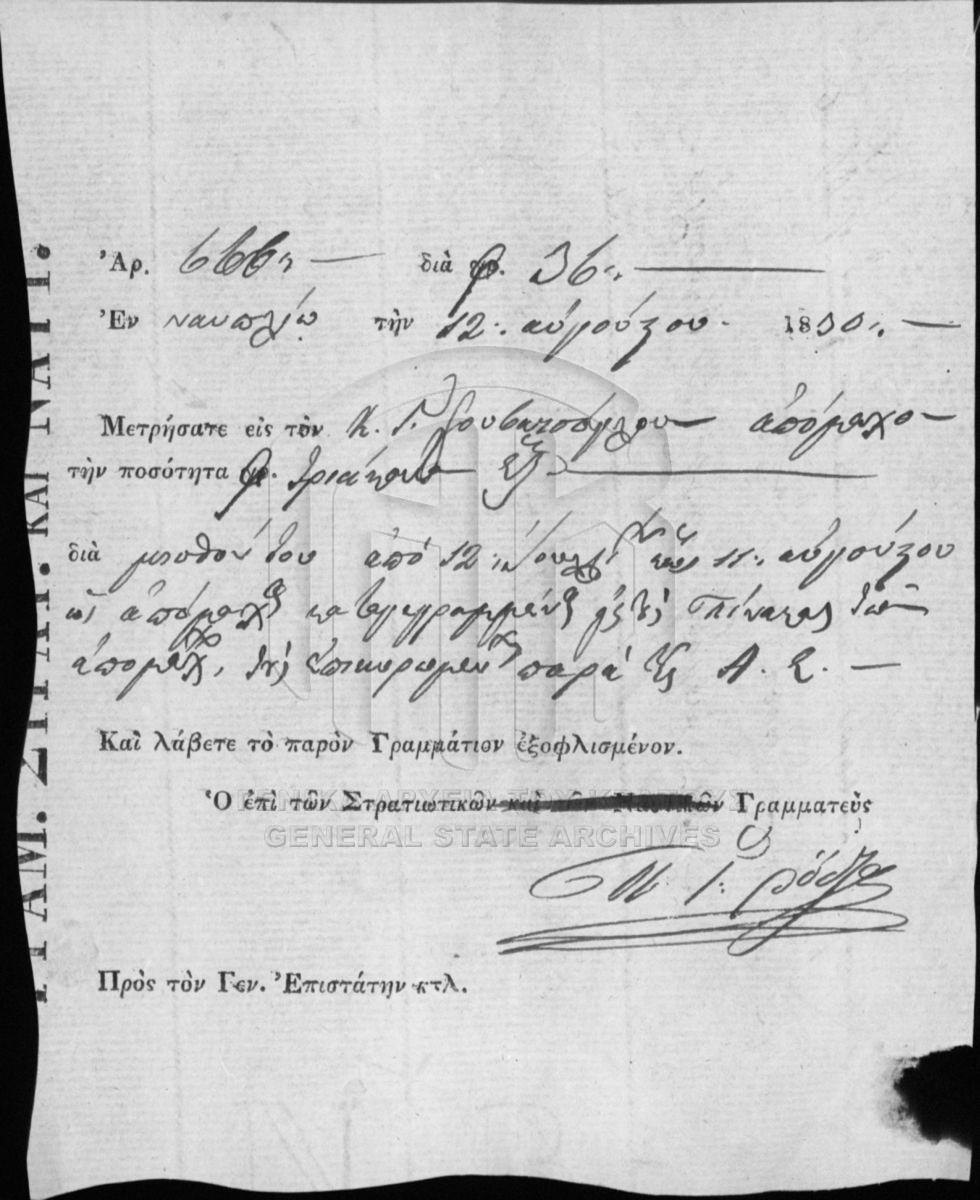 Ἀρ. 666 διὰ φ. 36
Ἐν ναυπλίῳ τὴν 12 αὐγούστου 1830
Μετρήσατε εἰς τὸν Κ. Γ. ἀπόμαχον
τὴν ποσότητα φ. τριάκοντα ἓξ
διὰ μισθόν του ἀπὸ 12 Ἰουλίου ἕως 11 αὐγούστου
ὡς ἀπόμαχος καταγεγραμμένος εἰς τοὺς πίνακας τῶν
ἀπομάχων, τοὺς ἐπικυρωμένους παρὰ τῆς Α. Ε.
Καὶ λάβετε τὸ παρὸν Γραμμάτιον ἐξοφλισμένον.
Ὁ ἐπὶ τῶν Στρατιωτικῶν καὶ τῶν Ναυτικῶν Γραμματεὺς
Πρὸς τὸν Γεν. Ἐπιστάτην κτλ.
ΓΡΑΜ. ΣΤΡΑΤ. ΚΑΙ ΝΑΥΤ.
ΓΕΝΙΚΑ ΑΡΧΕΙΑ ΤΟΥ ΚΡΑΤΟΥΣ
GENERAL STATE ARCHIVES